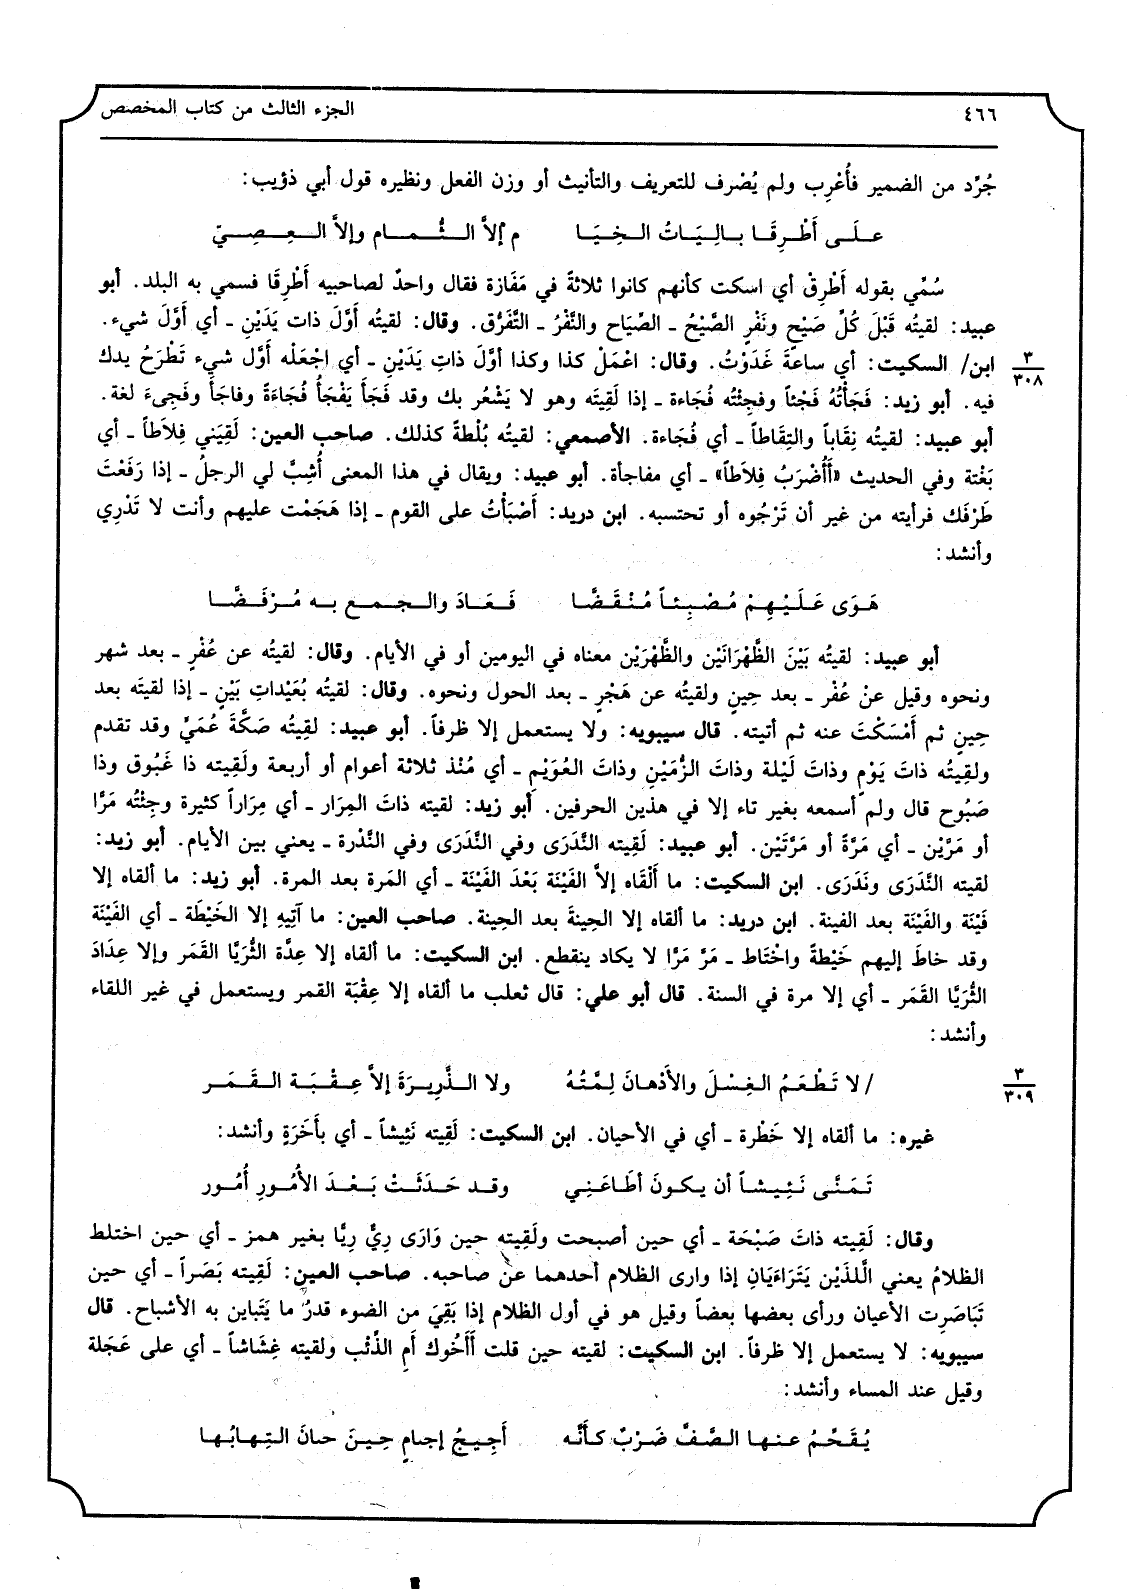 ٤٦٦ الجزء الثالث من كتاب المخصص
جُرِّد من الضمير فأُعْرِب ولم يُصْرف للتعريف والتأنيث أو وزن الفعل ونظيره قول أبي ذؤيب:
عـلـى أَطْـرِقَـا بـالِـيَـاتُ الـخِـيَـا م إلاَّ الـثُّـمـام وإلاَّ الـعِـصِـيّ
سُمِّي بقوله أَطْرِقْ أي اسكت كأنهم كانوا ثلاثةً في مَفَازة فقال واحدٌ لصاحبيه أَطْرِقَا فسمي به البلد. أبو
عبيد: لقيتُه قَبْلَ كُلِّ صَيْحٍ ونَفْرٍ الصَّيْحُ ـ الصِّيَاح والنَّفْرُ ـ التَّفَرُّق. وقال: لقيتُه أَوَّلَ ذات يَدَيْنِ ـ أي أَوَّلَ شيء.
ابن/ السكيت: أي ساعةَ غَدَوْتُ. وقال: اعْمَلْ كذا وكذا أوَّلَ ذاتِ يَدَيْنِ ـ أي اجْعَلْه أَوَّل شيء تَطْرَحُ يدك
٣
٣٠٨
فيه. أبو زيد: فَجَأْتُهُ فَجْئاً وفجِئْتُه فُجَاءة ـ إذا لَقِيتَه وهو لا يَشْعُر بك وقد فَجَأَ يَفْجَأُ فُجَاءَةً وفاجَأَ وفَجِىءَ لغة.
أبو عبيد: لقيتُه نِقَاباً والتِقَاطاً ـ أي فُجَاءة. الأصمعي: لقيتُه بُلْطةً كذلك. صاحب العين: لَقِيَني فِلاَطاً ـ أي
بَغْتة وفي الحديث «أَأُضْرَبُ فِلاَطاً» ـ أي مفاجأة. أبو عبيد: ويقال في هذا المعنى أُشِبَّ لي الرجلُ ـ إذا رَفَعْتَ
طَرْفَك فرأيته من غير أن تَرْجُوه أو تحتسبه. ابن دريد: أَصْبَأْتُ على القوم ـ إذا هَجَمْت عليهم وأنت لا تَدْرِي
وأنشد:
هَـوَى عَـلَـيْـهِـمْ مُـصْـبِـئـاً مُـنْـقَـضَّـا فَـعَـادَ والـجـمـع بـه مُـرْفَـضَّـا
أبو عبيد: لقيتُه بَيْنَ الظَّهْرَانَيْن والظَّهْرَيْن معناه في اليومين أو في الأيام. وقال: لقيتُه عن عُفْرٍ ـ بعد شهر
ونحوه وقيل عنْ عُفْر ـ بعد حِينٍ ولقيتُه عن هَجْرٍ ـ بعد الحول ونحوه. وقال: لقيتُه بُعَيْداتِ بَيْنٍ ـ إذا لقيتَه بعد
حِينٍ ثم أَمْسَكْتَ عنه ثم أتيته. قال سيبويه: ولا يستعمل إلا ظرفاً. أبو عبيد: لقِيتُه صَكَّةَ عُمَيٍّ وقد تقدم
ولقِيتُه ذاتَ يَوْمٍ وذاتَ لَيْلة وذاتَ الزُّمَيْنِ وذاتَ العُوَيْمِ ـ أي مُنْذ ثلاثة أعوام أو أربعة ولَقِيته ذا غَبُوق وذا
صَبُوح قال ولم أسمعه بغير تاء إلا في هذين الحرفين. أبو زيد: لقيته ذاتَ المِرَار ـ أي مِرَاراً كثيرة وجِئْتُه مَرًّا
أو مَرَّيْن ـ أي مَرَةً أو مَرَّتَيْن. أبو عبيد: لَقِيته النَّدَرَى وفي النَّدَرَى وفي النَّدْرة ـ يعني بين الأيام. أبو زيد:
لقيته النَّدَرَى ونَدَرَى. ابن السكيت: ما أَلْقَاه إلاَّ الفَيْنَة بَعْدَ الفَيْنَة ـ أي المَرة بعد المرة. أبو زيد: ما ألقاه إلا
فَيْنَة والفَيْنَة بعد الفينة. ابن دريد: ما ألقاه إلا الحِينةَ بعد الحِينة. صاحب العين: ما آتِيهِ إلا الخَيْطَة ـ أي الفَيْنَة
وقد خاطَ إليهم خَيْطةً واخْتَاط ـ مَرَّ مَرًّا لا يكاد ينقطع. ابن السكيت: ما ألقاه إلا عِدَّة الثُّرَيَّا القَمَر وإلا عِدَادَ
الثُّرَيَّا القَمَر ـ أي إلا مرة في السنة. قال أبو علي: قال ثعلب ما ألقاه إلا عِقْبَة القمر ويستعمل في غير اللقاء
وأنشد:
/ لا تَـطْـعَـمُ الـغِـسْـلَ والأَدْهـانَ لِـمَّـتُـهُ ولا الـذَّرِيـرَةَ إلاَّ عِـقْـبَـةَ الـقَـمَـر
٣
٣٠٩
غيره: ما ألقاه إلا خَطْرة ـ أي في الأحيان. ابن السكيت: لَقِيته نَئِيشاً ـ أي بأَخَرَةٍ وأنشد:
تَـمَـنَّـى نَـئِـيـشـاً أن يـكـونَ أطَـاعَـنِـي وقـد حَـدَثَـتْ بَـعْـدَ الأُمُـورِ أُمُـور
وقال: لَقِيته ذاتَ صَبْحَة ـ أي حين أصبحت ولَقِيته حين وَارَى رِيٌّ رِيًّا بغير همز ـ أي حين اختلط
الظلامُ يعني الَّلذَيْن يَتَرَاءَيَانِ إذا وارى الظلام أحدهما عن صاحبه. صاحب العين: لَقِيته بَصَراً ـ أي حين
تَبَاصَرتِ الأعيان ورأى بعضها بعضاً وقيل هو في أول الظلام إذا بَقِيَ من الضوء قدرُ ما يَتَباين به الأشباح. قال
سيبويه: لا يستعمل إلا ظرفاً. ابن السكيت: لقيته حين قلت أَأَخُوك أَمِ الذِّئْب ولقيته غِشَاشاً ـ أي على عَجَلة
وقيل عند المساء وأنشد:
يُـقَـحِّـمُ عـنـهـا الـصَّـفَّ ضَـرْبٌ كـأَنَّـه أَجِـيـجُ إجـامٍ حِـيـنَ حـانَ الـتِـهـابُـهـا